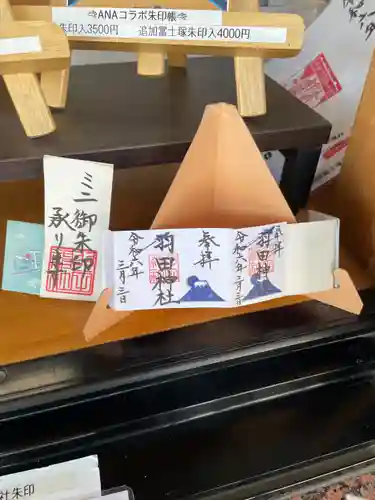 ANAコラボ朱印帳
朱印入3500円　追加富士塚朱印入4000円
ミニ御朱印
承ります
奉拝
羽田神社
令和六年
三月三日
羽田神
令和六年三月三日
社朱印